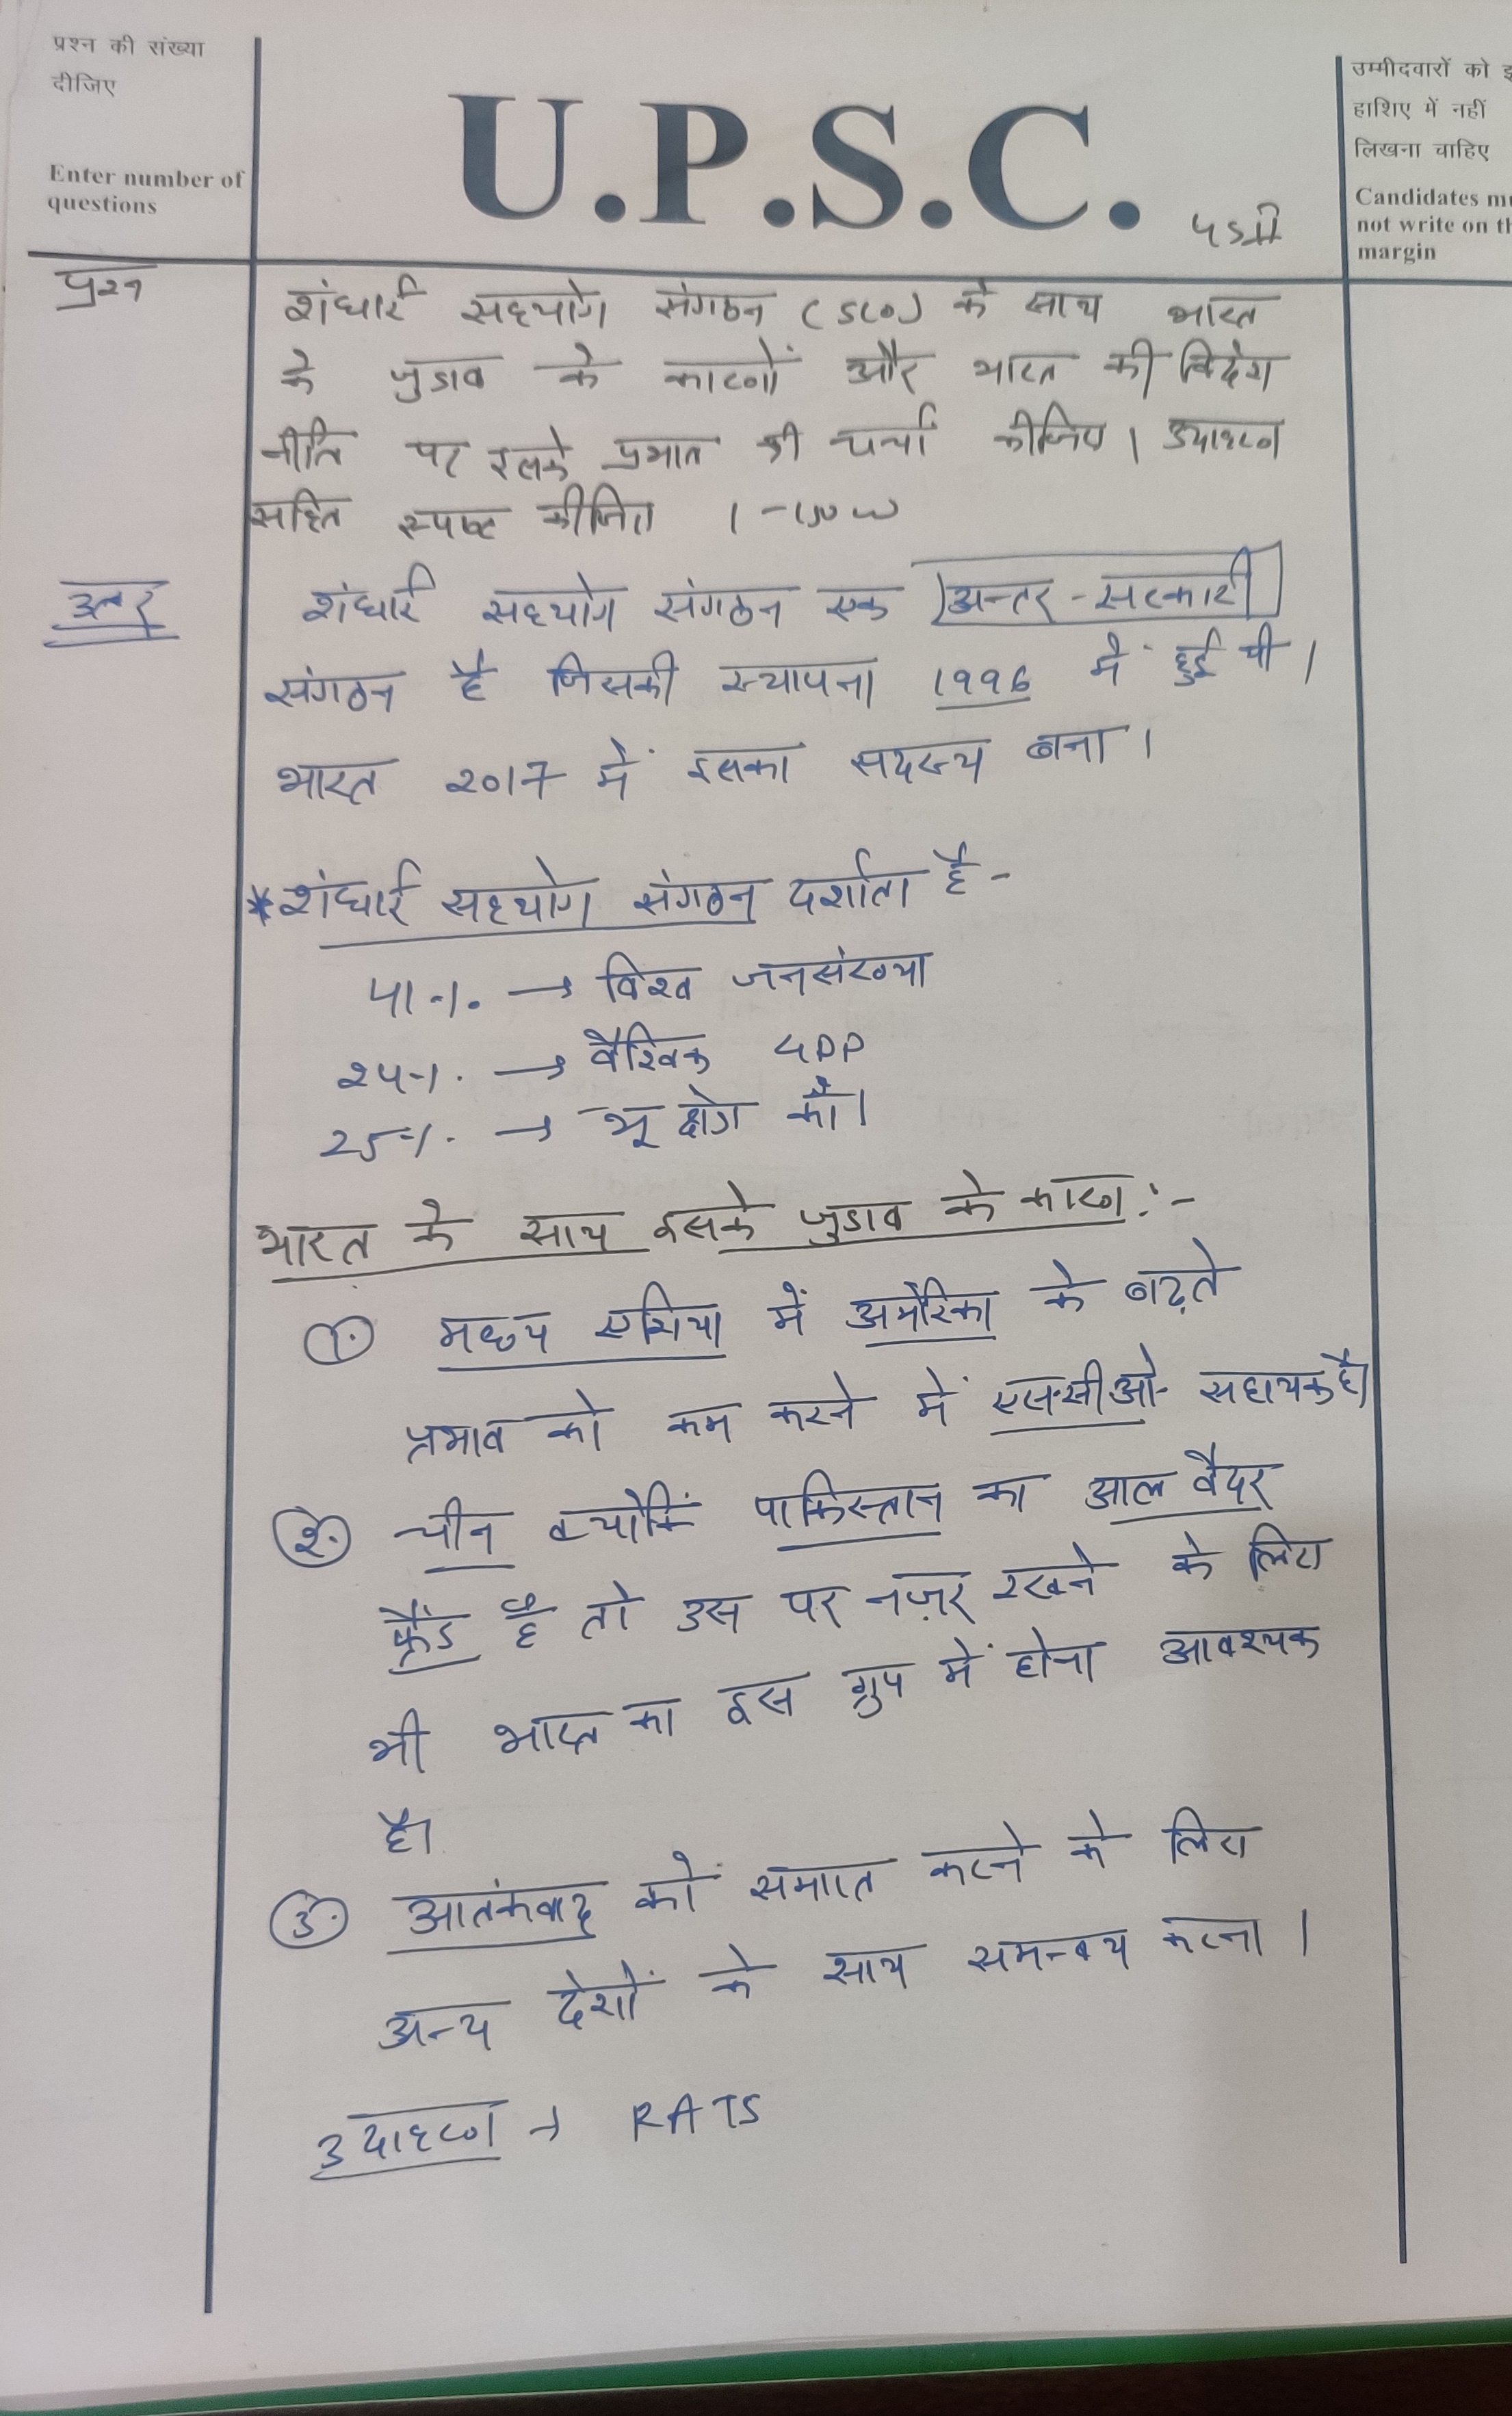 प्रश्न की संख्या
दीजिए
Enter number of
questions
U.P.S.C.
उम्मीदवारों को
हाशिए में नहीं
लिखना चाहिए
Candidates
not write on
margin
प्रश्न
शंघाई सहयोग संगठन (SCO) के साथ भारत
के जुडाव के कारणों और भारत की विदेश
नीति पर इसके प्रभाव की चर्चा कीजिए। उदाहरण
सहित स्पष्ट कीजिए ।
उत्तर
शंघाई सहयोग संगठन एक अन्तर-सरकारी
संगठन है जिसकी स्थापना 1996 में हुई थी।
भारत 2017 में इसका सदस्य बना।
*शंघाई सहयोग संगठन दर्शाता है -
41% → विश्व जनसंख्या
24% → वैश्विक GDP
25% → भू क्षेत्र को।
भारत के साथ इसके जुडाव के कारण :-
1. मध्य एशिया में अमेरिका के बढ़ते
प्रभाव को कम करने में एससीओ सहायक है।
2. चीन क्योकिं पाकिस्तान का आल वैदर
फ्रैंड है तो उस पर नज़र रखने के लिए
भी भारत का इस ग्रुप में होना आवश्यक
है।
3. आतंकवाद को समाप्त करने के लिए
अन्य देशों के साथ समन्वय करना।
उदाहरण → RATS